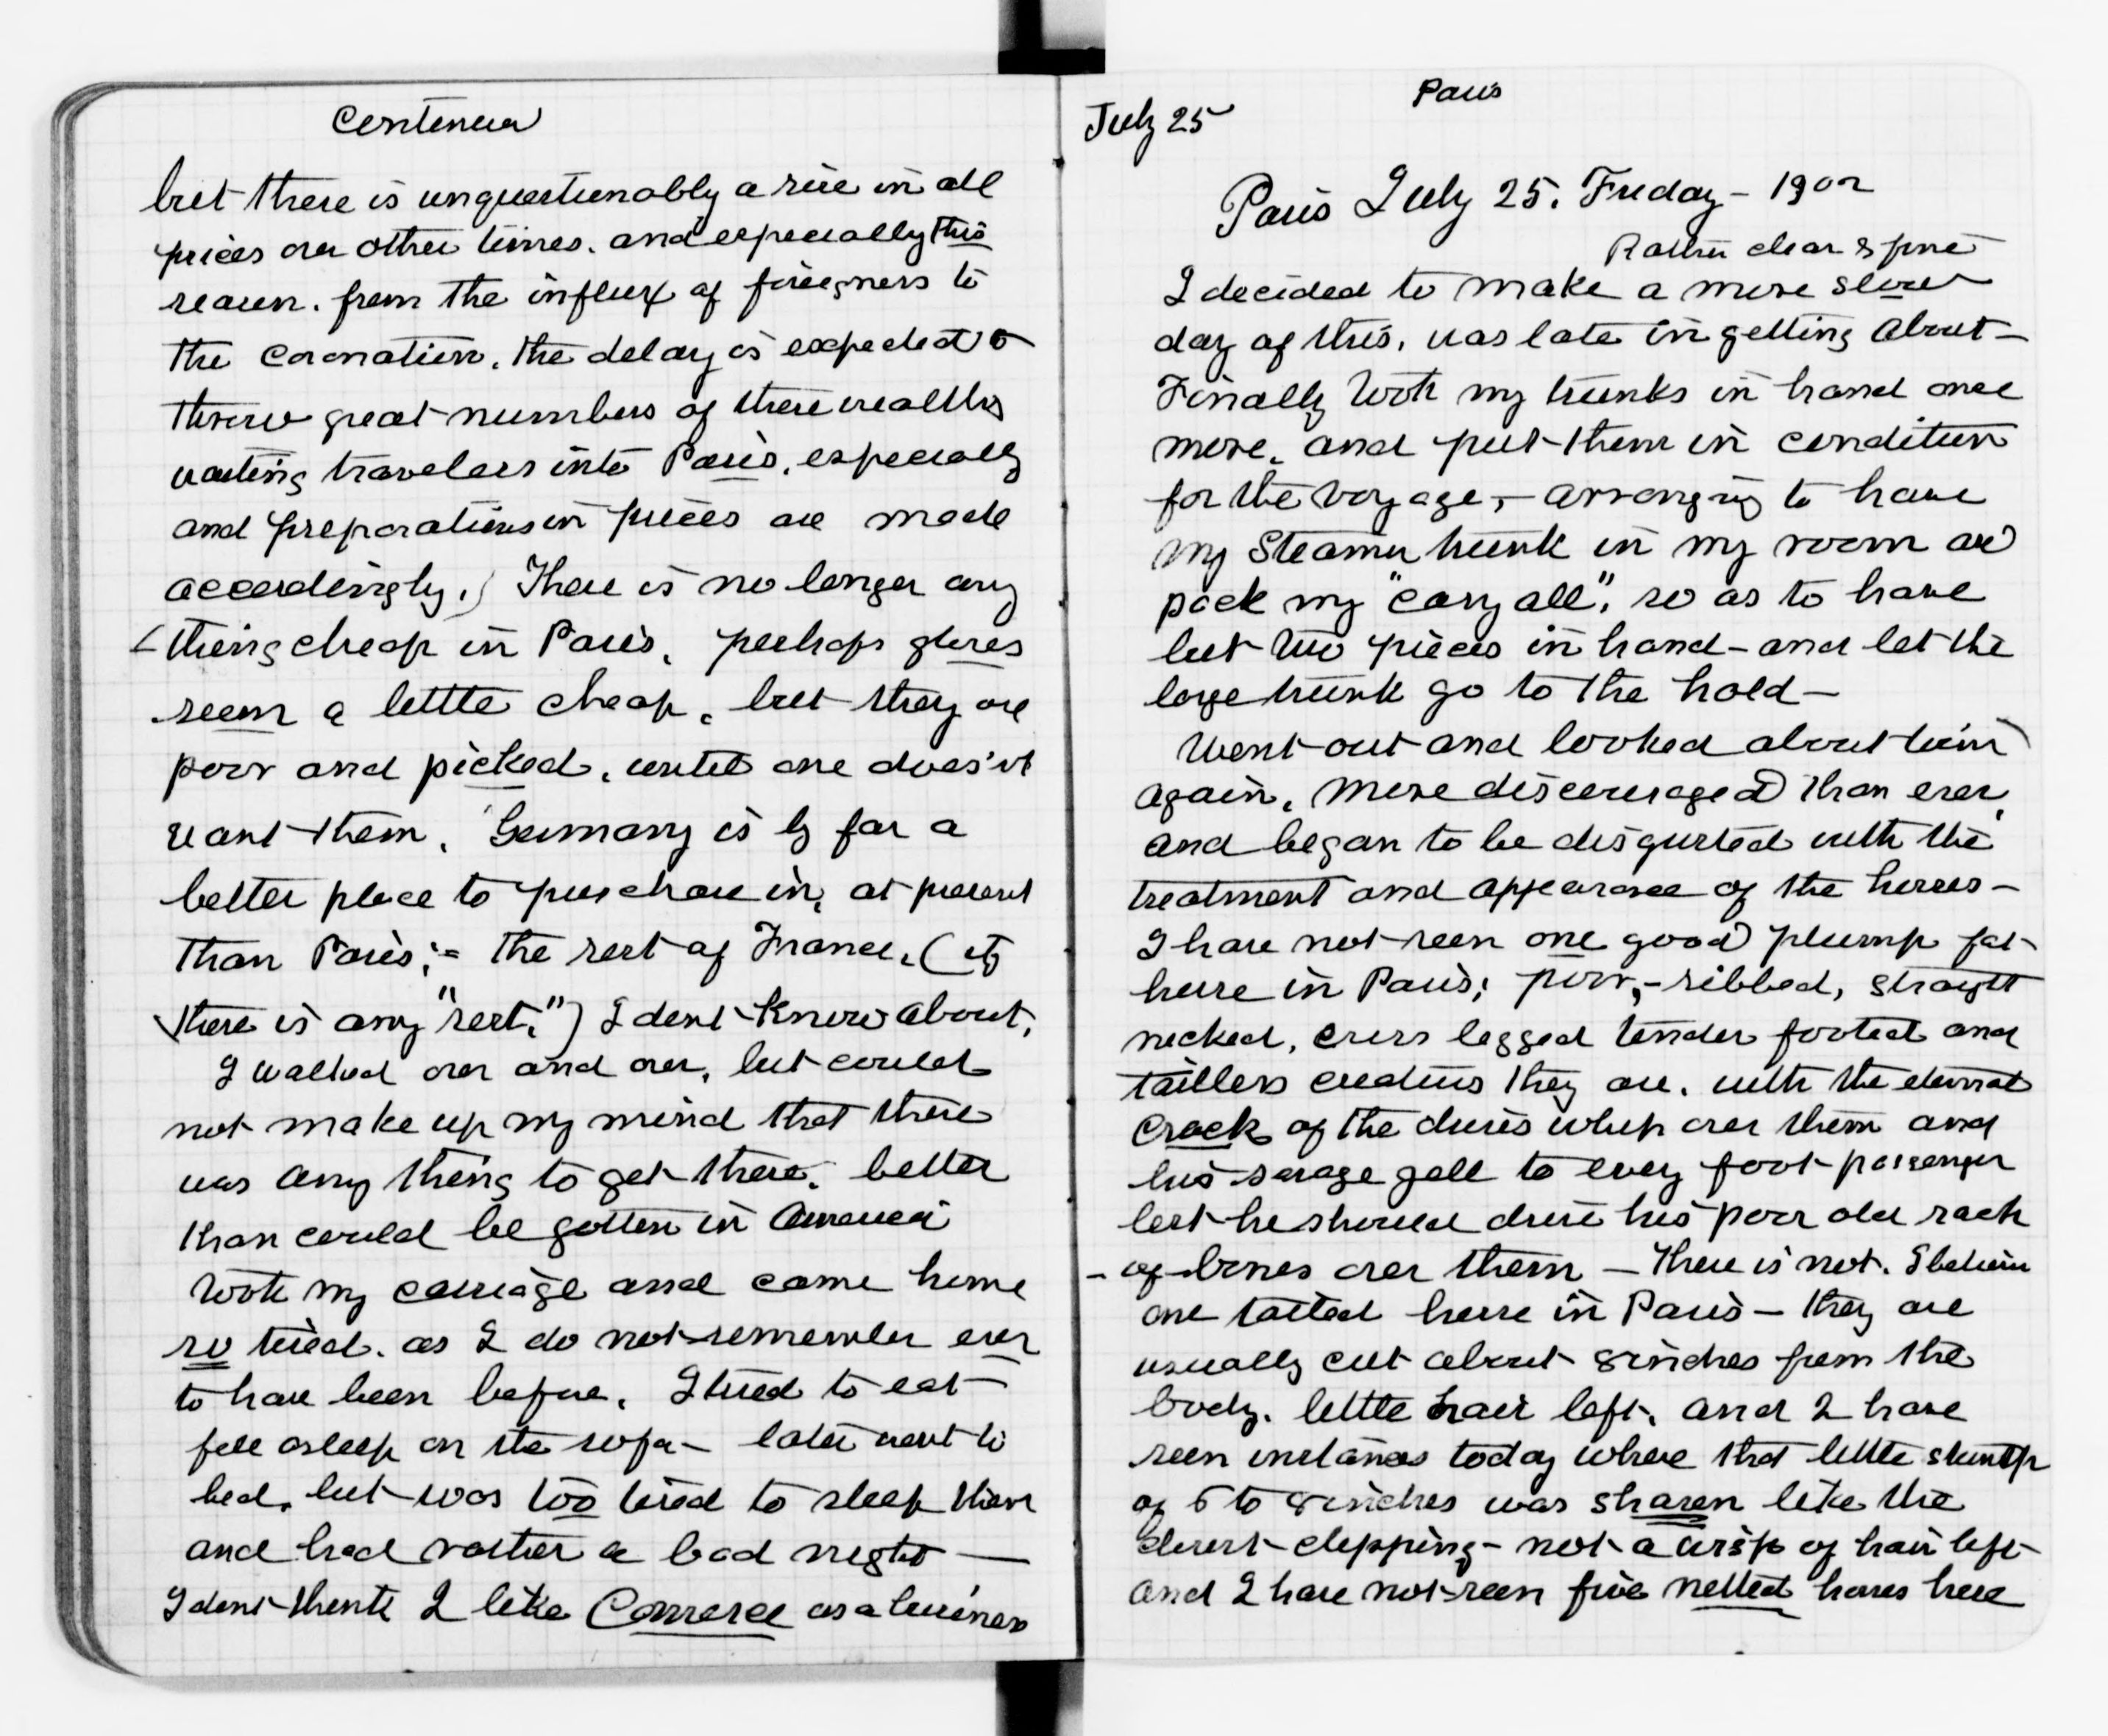 Continued
but there is unquestionably a rise in all
prices over other times. and especially this
season. from the influx of foreigners to
the Coronation. the delay is expected to
throw great numbers of these wealthy
waiting travelers into Paris, especially
and preparations in prices are made
accordingly.) There is no longer any
thing cheap in Paris. perhaps gloves
seem a little cheap. but they are
poor and picked, until one does'nt
want them. Germany is by far a
better place to purchase in, at present
than Paris; - the rest of France. (if
there is any "rest,") I dont know about.
I walked over and over, but could
not make up my mind that there
was any thing to get there. better
than could be gotten in America
Took my carriage and came home
so tired. as I do not remember ever
to have been before. I tried to eat -
fell asleep on the sofa - later went to
bed. but was too tired to sleep then
and had rather a bad night —
I dont think I like Comerce as a business
Paris
July 25
Paris July 25. Friday - 1902
Rather clear & fine
I decided to make a more slow
day of this. was late in getting about -
Finally took my trunks in hand once
more. and put them in condition
for the voyage, - arranging to have
my Steamer trunk in my room and
pack my "cary all". so as to have
but two pieces in hand - and let the
large trunk go to the hold -
Went out and looked about town
again. more discouraged than ever,
and began to be disgusted with the
treatment and appearance of the horses -
I have not seen one good plump fat
horse in Paris; poor, - ribbed, straight
necked, cross legged tender footed and
tailless creatures they are. with the eternal
crack of the drivers whip over them and
his savage yell to every foot passenger
lest he should drive his poor old rack
- of bones over them — There is not. I believe
one tailed horse in Paris - they are
usually cut about 8 inches from the
body. little hair left. and I have
seen instances today where that little stump
of 6 to 8 inches was shaven like the
closest clipping - not a wisp of hair left
and I have not seen five netted horses here